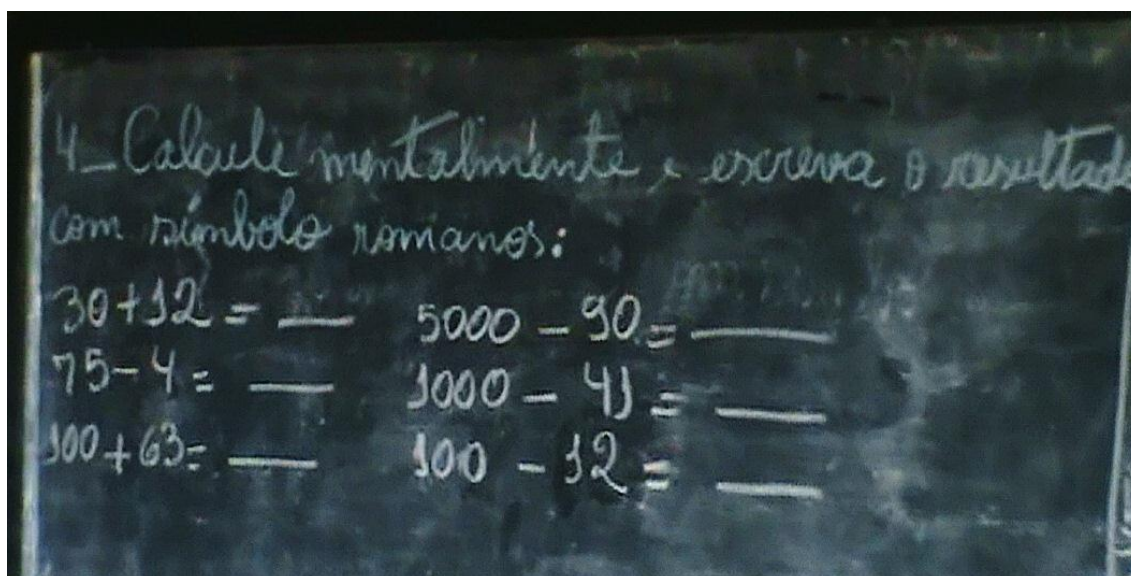 4_ Calcule mentalmente e escreva o resultado
com símbolo romanos:
30+12 = ___ 5000 - 90 = ___
75-4 = ___ 1000 - 41 = ___
100+63= ___ 100 - 12 = ___